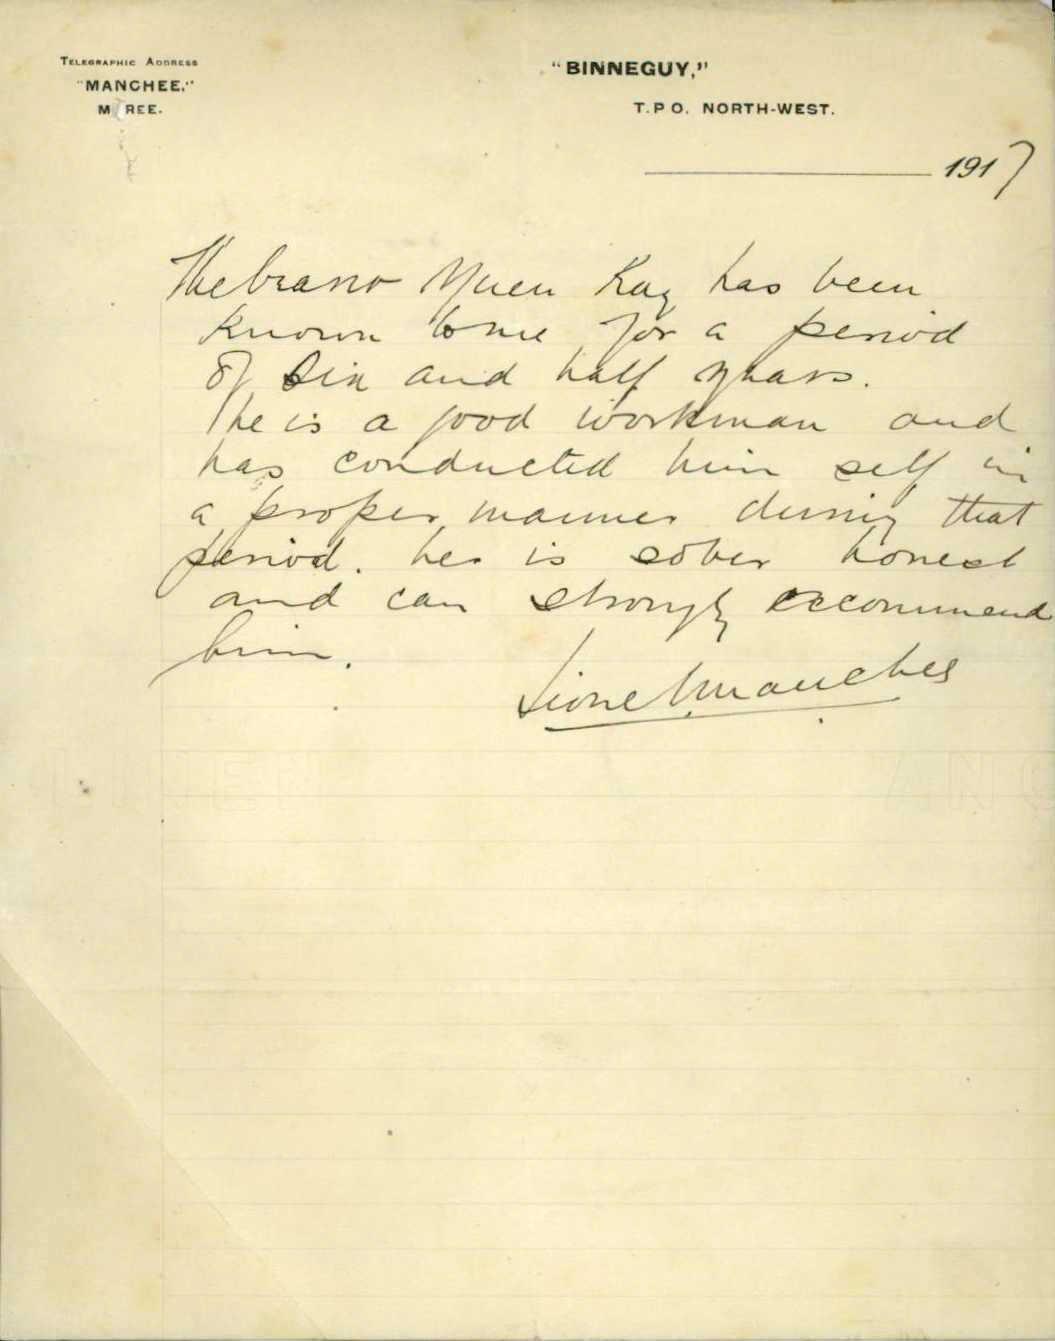 TELEGRAPHIC ADDRESS
"MANCHEE,"
M REE.
"BINNEGUY,"
T.P.O. NORTH-WEST.
1917
Yuen Kay has been
known to me for a period
of Six and half years.
he is a good workman and
has conducted him self in
a proper manner during that
period. he is sober honest
and can strongly reccommend
him.
Lionel Manchee
LINEN